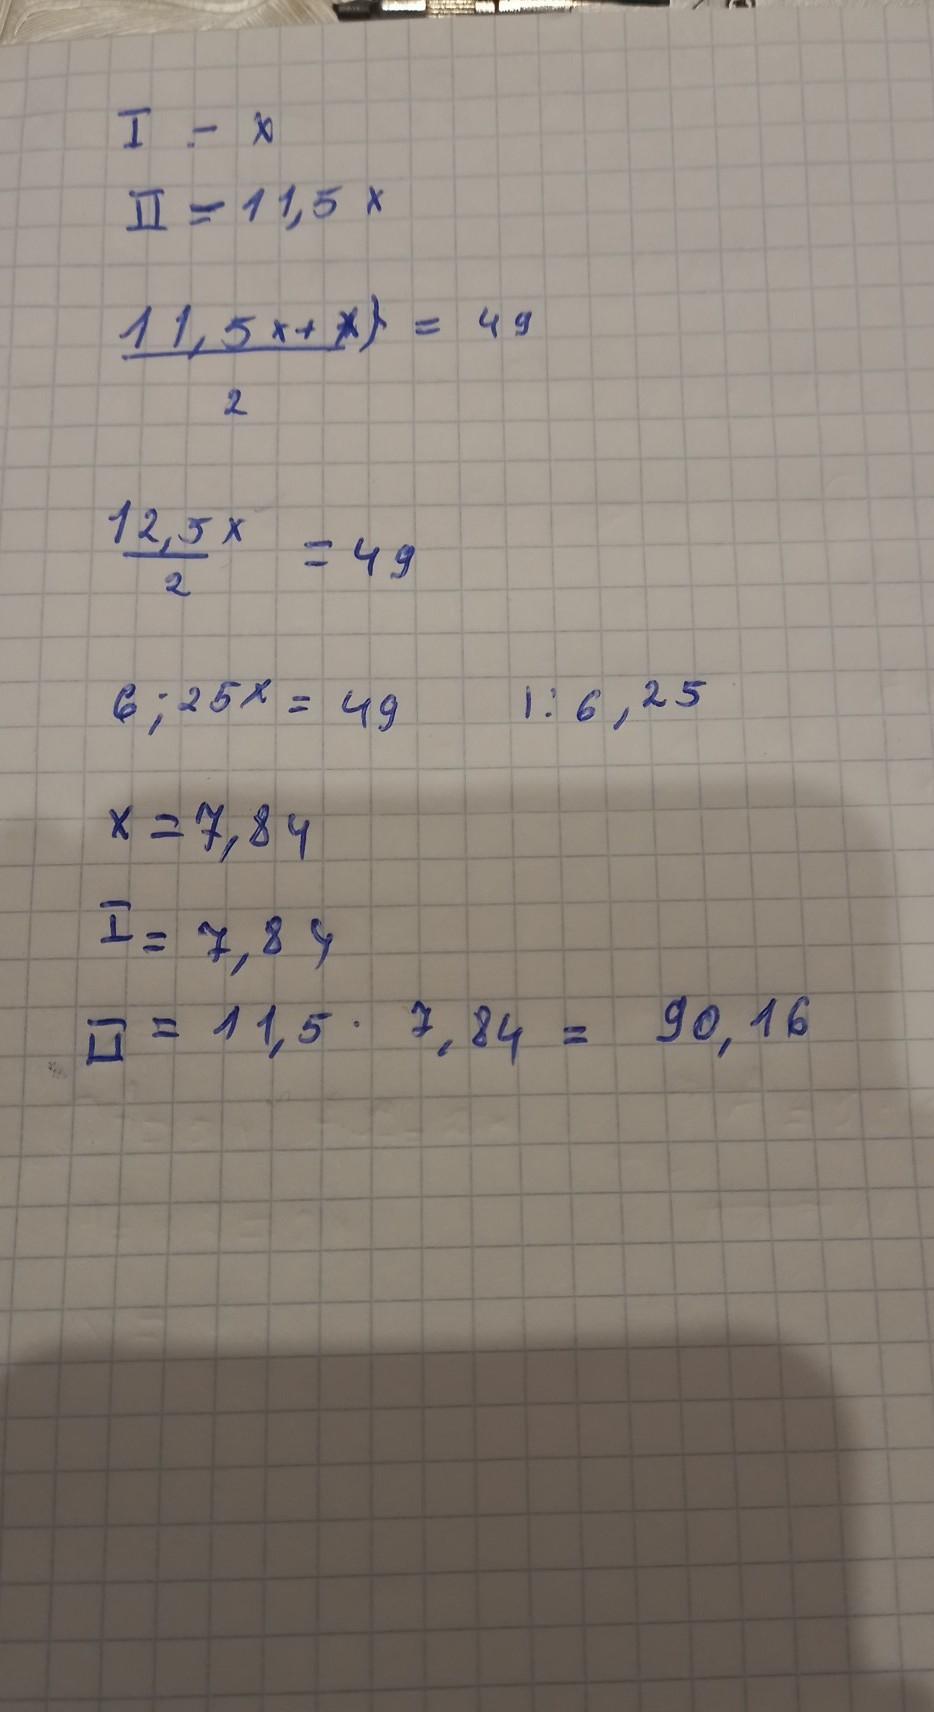 I - x
II = 11,5 x
11,5x+x) = 49
2
12,5x = 49
2
6;25x = 49 |: 6,25
x = 7,84
I = 7,84
II = 11,5 · 7,84 = 90,16